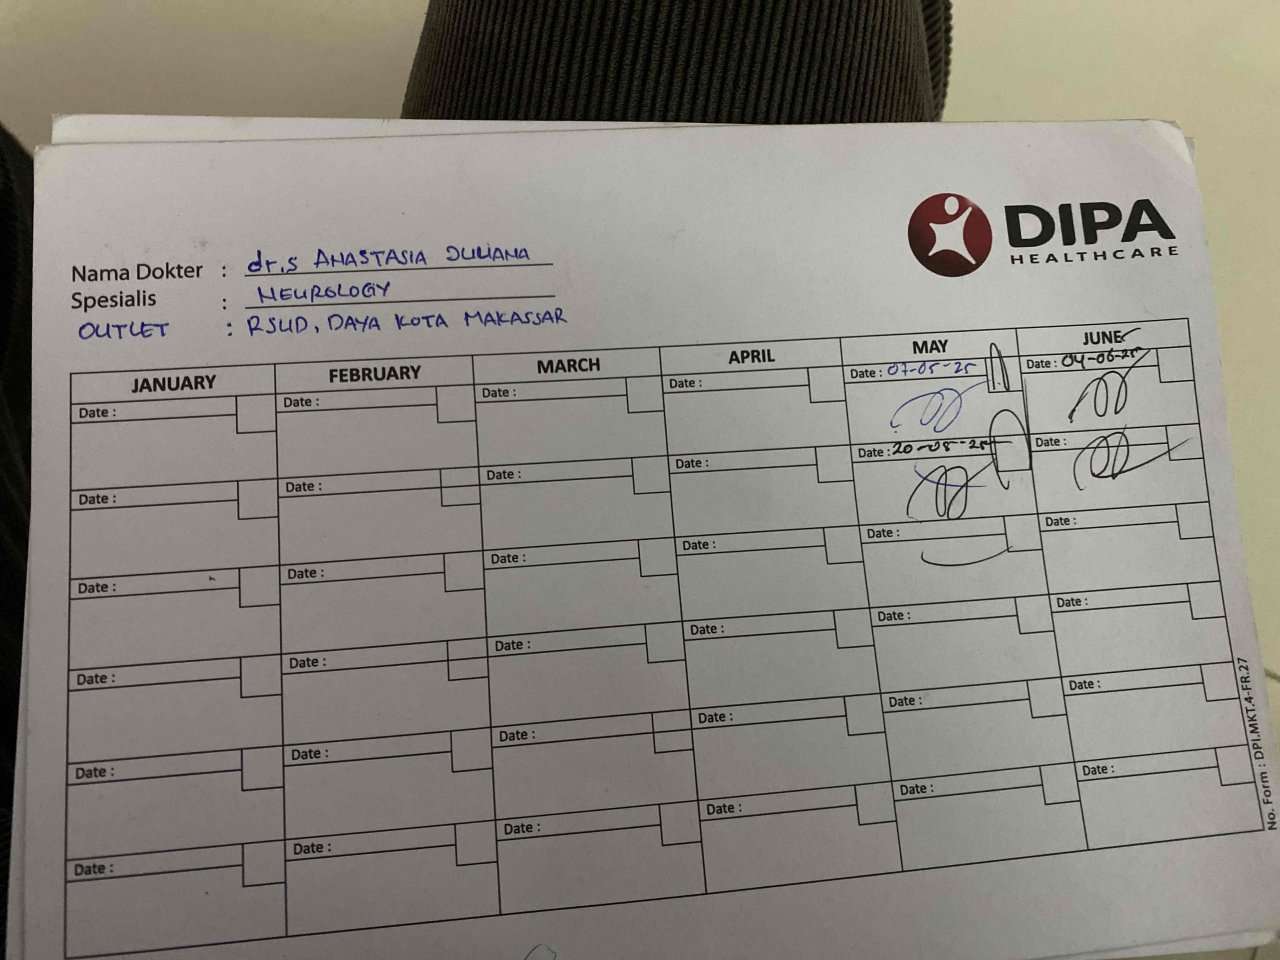 DIPA
HEALTHCARE
Nama Dokter : dr.s ANASTASIA JULIANA
Spesialis : NEUROLOGY
OUTLET : RSUD, DAYA KOTA MAKASSAR
JANUARY FEBRUARY MARCH APRIL MAY JUNE
Date : Date : Date : Date : Date : 07-05-25 Date : 04-06-25
Date : Date : Date : Date : Date : 20-05-25 Date :
Date : Date : Date : Date : Date : Date :
Date : Date : Date : Date : Date : Date :
Date : Date : Date : Date : Date : Date :
Date : Date : Date : Date : Date : Date :
No. Form : DPI.MKT.4-FR.27